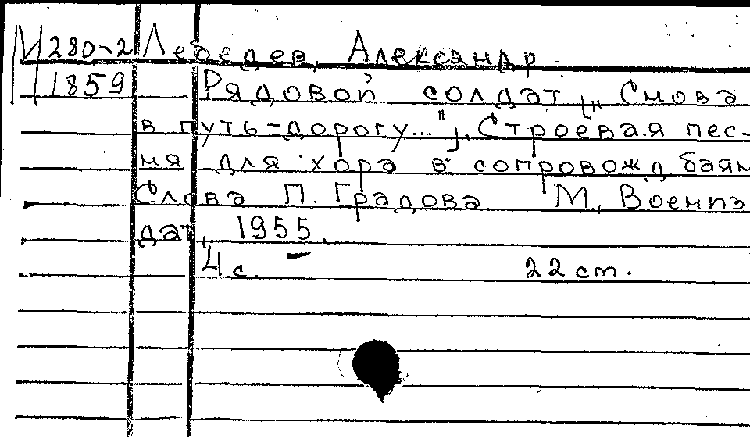 М 280-2 Лебедев, Александр
1859 Рядовой солдат. [„Снова
в путь-дорогу..."]. Строевая пес-
ня для хора в сопровожд. баян
Слова П. Градова М., Воениз
дат, 1955.
4 с. 22 cm.